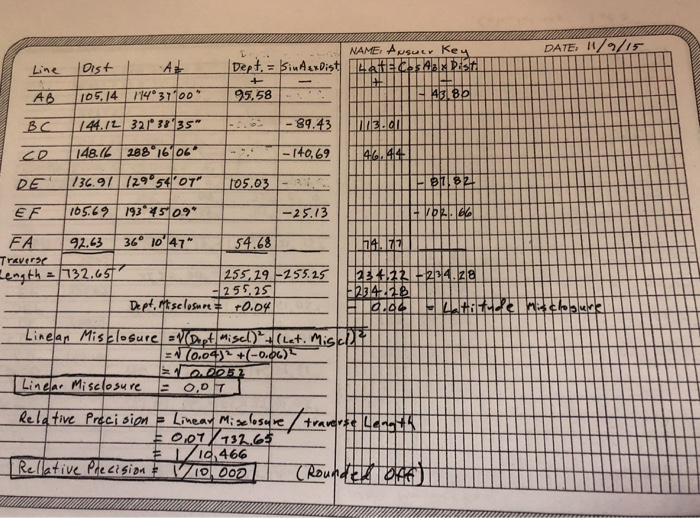 NAME: Answer Key DATE: 11/9/15
Line Dist Az Dept. = SinAz x Dist Lat = Cos Az x Dist
+ - + -
AB 105.14 114° 37' 00" 95.58 - 43.80
BC 144.12 321° 38' 35" - 89.43 113.01
CD 148.16 288° 16' 06" - 140.69 46.44
DE 136.91 129° 54' 07" 105.03 - 87.82
EF 105.69 193° 45' 09" - 25.13 - 102.66
FA 92.63 36° 10' 47" 54.68 74.77
Traverse
Length = 732.65' 255.29 - 255.25 234.22 - 234.28
- 255.25 - 234.28
Dept. Misclosure = +0.04 - 0.06 = Latitude Misclosure
Linear Misclosure = √(Dept Miscl.)² + (Lat. Miscl)²
= √(0.04)² + (-0.06)²
= √0.0052
Linear Misclosure = 0.07
Relative Precision = Linear Misclosure / traverse Length
= 0.07 / 732.65
= 1/10,466
Rellative Precision = 1/10,000 (Rounded Off)